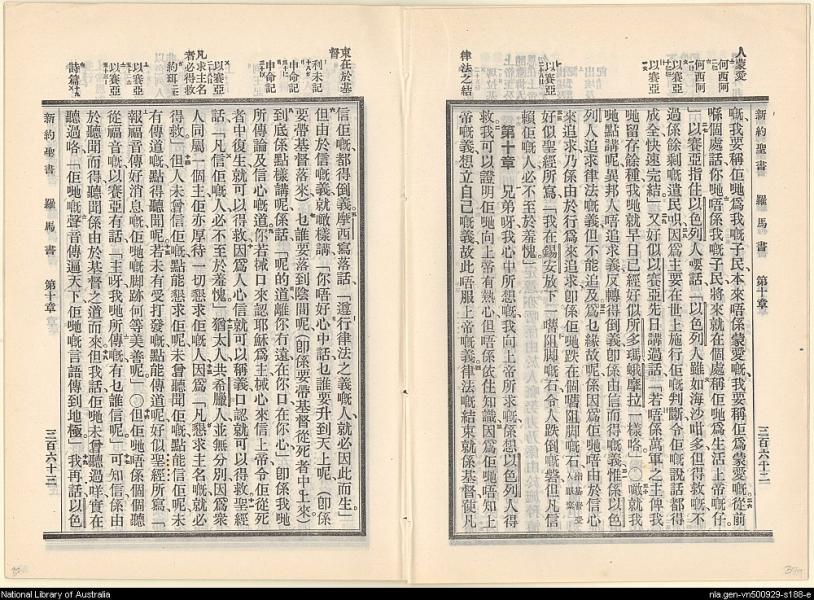 人蒙愛
何西阿
何西阿
以賽亞
以賽亞
以賽亞
律法之結
新約聖書 羅馬書 第十章 三百六十二
嘅、我要稱佢哋爲我嘅子民本來唔係蒙愛嘅、我要稱佢爲蒙愛嘅從前
喺個處話你哋唔係我嘅子民將來就在個處稱佢哋爲生活上帝嘅仔
」以賽亞指住以色列人嗌話、「以色列人雖如海沙咁多但得救嘅不
過係餘剩嘅遺民㖞因爲主要在世上施行佢嘅判斷令佢嘅說話都得
成全快速完結」又好似以賽亞先日講過話「若唔係萬軍之主俾我
哋留存餘種我哋就早日已經好似所多瑪蛾摩拉一樣咯」〇噉就我
哋點講呢異邦人唔追求義反轉得倒義卽係由信而得嘅義惟係以色
列人追求律法嘅義但不能追及爲乜緣故呢係因爲佢哋唔由於信心
來追求乃係由於行爲來追求卽係佢哋跌在個嚿阻脚嘅石
好似聖經所寫「我在錫安放下一嚿阻脚嘅石令人跌倒嘅磐但凡信
賴佢嘅人必不至於羞愧」
第十章 兄弟呀我心中所想嘅我向上帝所求嘅係想以色列人得
救我可以證明佢哋向上帝有熱心但唔係依住知識因爲佢哋唔知上
帝嘅義想立自己嘅義故此唔服上帝嘅義律法嘅結束就係基督使凡
東在於基
督
利未記
申命記
申命記
以賽亞
凡求主名
者必得救
約珥
以賽亞
以賽亞
詩篇
信佢嘅都得倒義摩西寫落話、「遵行律法之義嘅人就必因此而生」
但由於信嘅義就噉樣講「你唔好心中話乜誰要升到天上呢（卽係
要帶基督落來）乜誰要落到陰間呢（卽係要帶基督從死者中上來）
到底係點樣講呢係話「呢的道離你冇遠在你口在你心」卽係我哋
所傳論及信心嘅道你若械口來認耶穌爲主械心來信上帝令佢從死
者中復生就可以得救因爲人心信就可以稱義口認就可以得救聖經
話「凡信佢嘅人必不至於羞愧」猶太人共希臘人並無分別因爲衆
人同屬一個主佢亦厚待一切懇求佢嘅人因爲「凡懇求主名嘅就必
得救」但人未曾信佢嘅點能懇求佢呢未曾聽聞佢嘅點能信佢呢未
有傳道嘅點得聽聞呢若未有受打發嘅點能傳道呢好似聖經所寫「
報福音傳好消息嘅佢哋嘅脚跡何等美善呢」〇但佢哋唔係個個聽
從福音嘅以賽亞有話「主呀我哋所傳嘅有乜誰信呢」可知信係由
於聽聞而得聽聞係由於基督之道而來但我話佢哋未曾聽過咩實在
聽過咯「佢哋嘅聲音傳遍天下佢哋嘅言語傳到地極」我再話以色
新約聖書 羅馬書 第十章 三百六十三
National Library of Australia
nla.gen-vn500929-s188-e